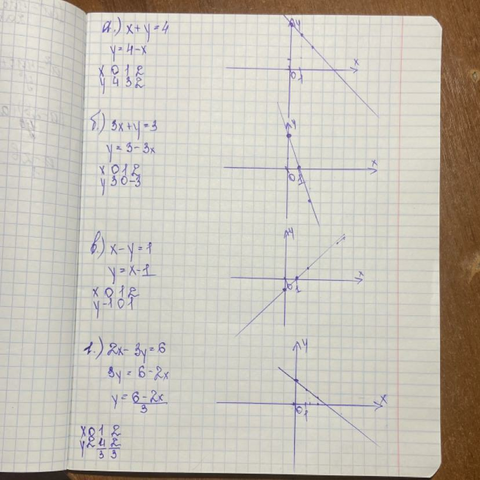 а.) x+y=4
y=4-x
x 0 1 2
y 4 3 2
y
x
0 1
б.) 3x+y=3
y=3-3x
x 0 1 2
y 3 0 -3
y
x
0 1
в.) x-y=1
y=x-1
x 0 1 2
y -1 0 1
y
x
0 1
г.) 2x-3y=6
3y=6-2x
y=6-2x/3
x 0 1 2
y 2 4/3 2/3
y
x
0 1